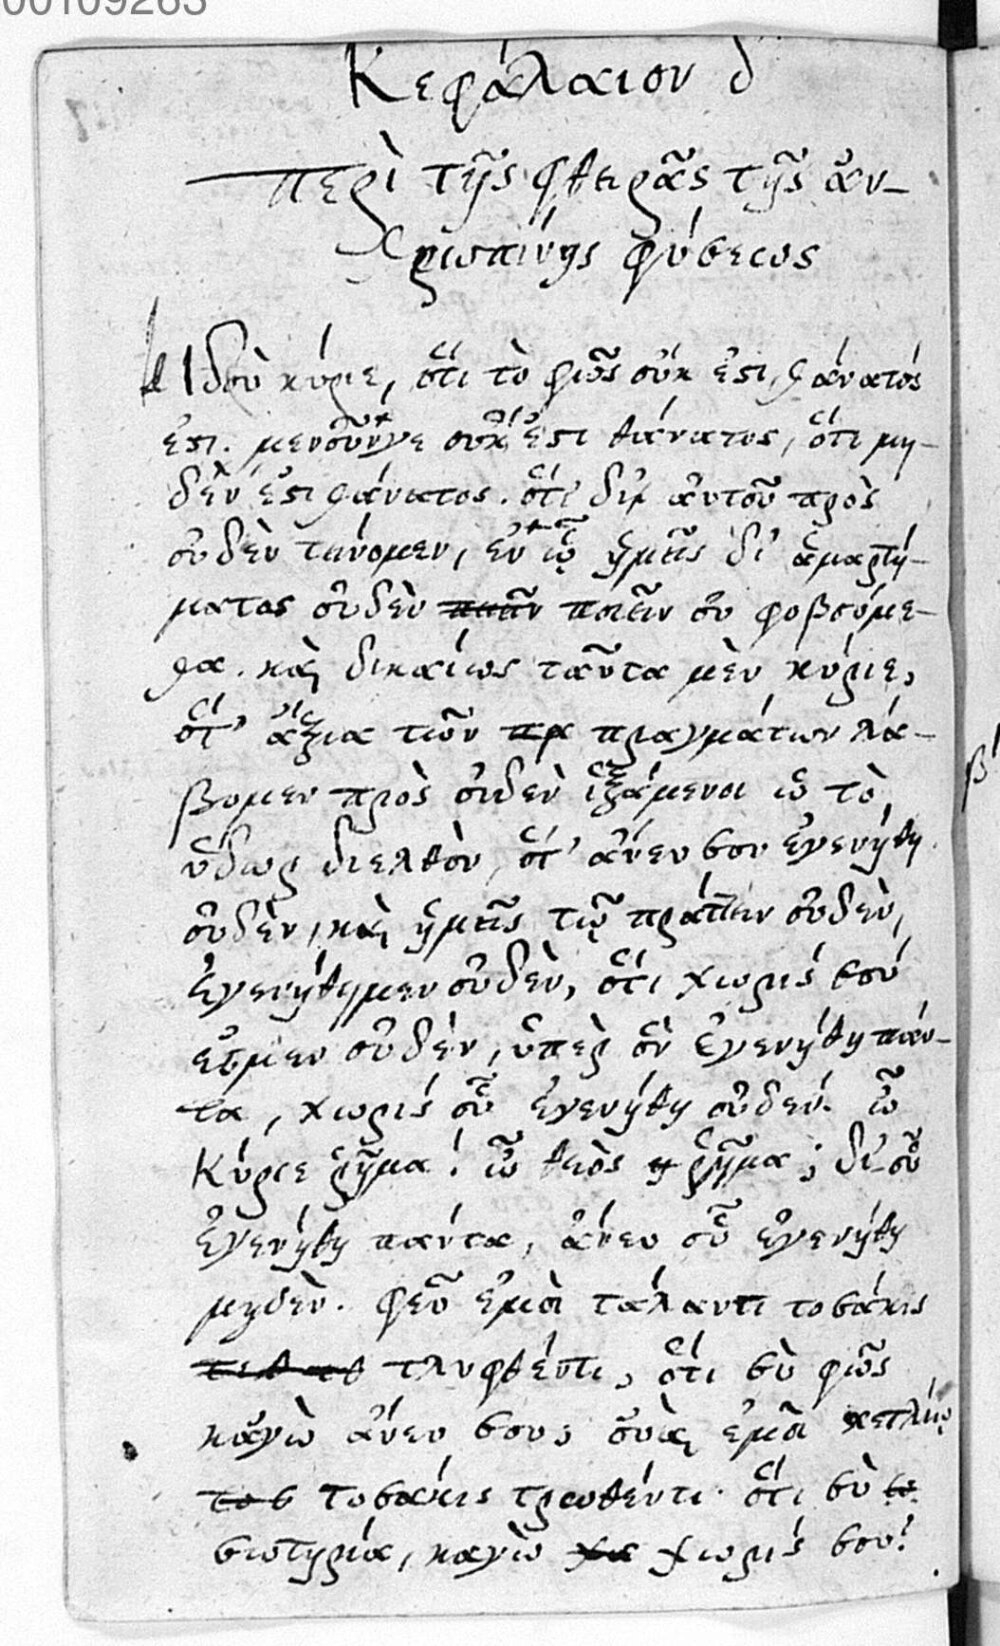 00109263
Κεφάλαιον δ
περὶ τῆς φθειρᾶς τῆς ἀν-
θρωπίνης φύσεως
Ἰδοὺ κύριε, ὅτι τὸ φῶς οὐκ ἐστι, θάνατός
ἐστι. μενοῦνγε οὐκ ἔστι θάνατος, ὅτι μη-
δὲν ἐστι θάνατος. ὅτι δι' αὐτοῦ πρὸς
οὐδὲν τείνομεν, ἐν ᾧ ἡμεῖς δι' ἁμαρτή-
ματος οὐδὲν ποιεῖν οὐ φοβούμε-
θα. καὶ δικαίως ταῦτα μὲν κύριε,
ὅτι ἄξια τῶν πραγμάτων λά-
βομεν πρὸς οὐδὲν ὡς τὸ
ὕδωρ διελθὸν, ὅτι ἄνευ σου ἐγενήθη
οὐδὲν, καὶ ἡμεῖς τῷ πράττειν οὐδὲν,
ἐγενήθημεν οὐδὲν, ὅτι χωρίς σού
ἐσμεν οὐδὲν, ὑπὲρ ὃν ἐγενήθη πάν-
τα, χωρίς οὗ ἐγενήθη οὐδεν. ὦ
Κύριε ῥῆμα! ὦ θεὸς ῥῆμα; δι' οὗ
ἐγενήθη πάντα, ἄνευ οὗ ἐγενήθη
μηδὲν. φεῦ ἐμοὶ τάλαντι τοσάκις
τλυφθέντι, ὅτι σὺ φῶς
κἀγὼ ἄνευ σου, οὐαὶ ἐμοὶ
τοσάκις τρωθέντι. ὅτι σὺ
σωτηρία, καγὼ χωρίς σου!
β'